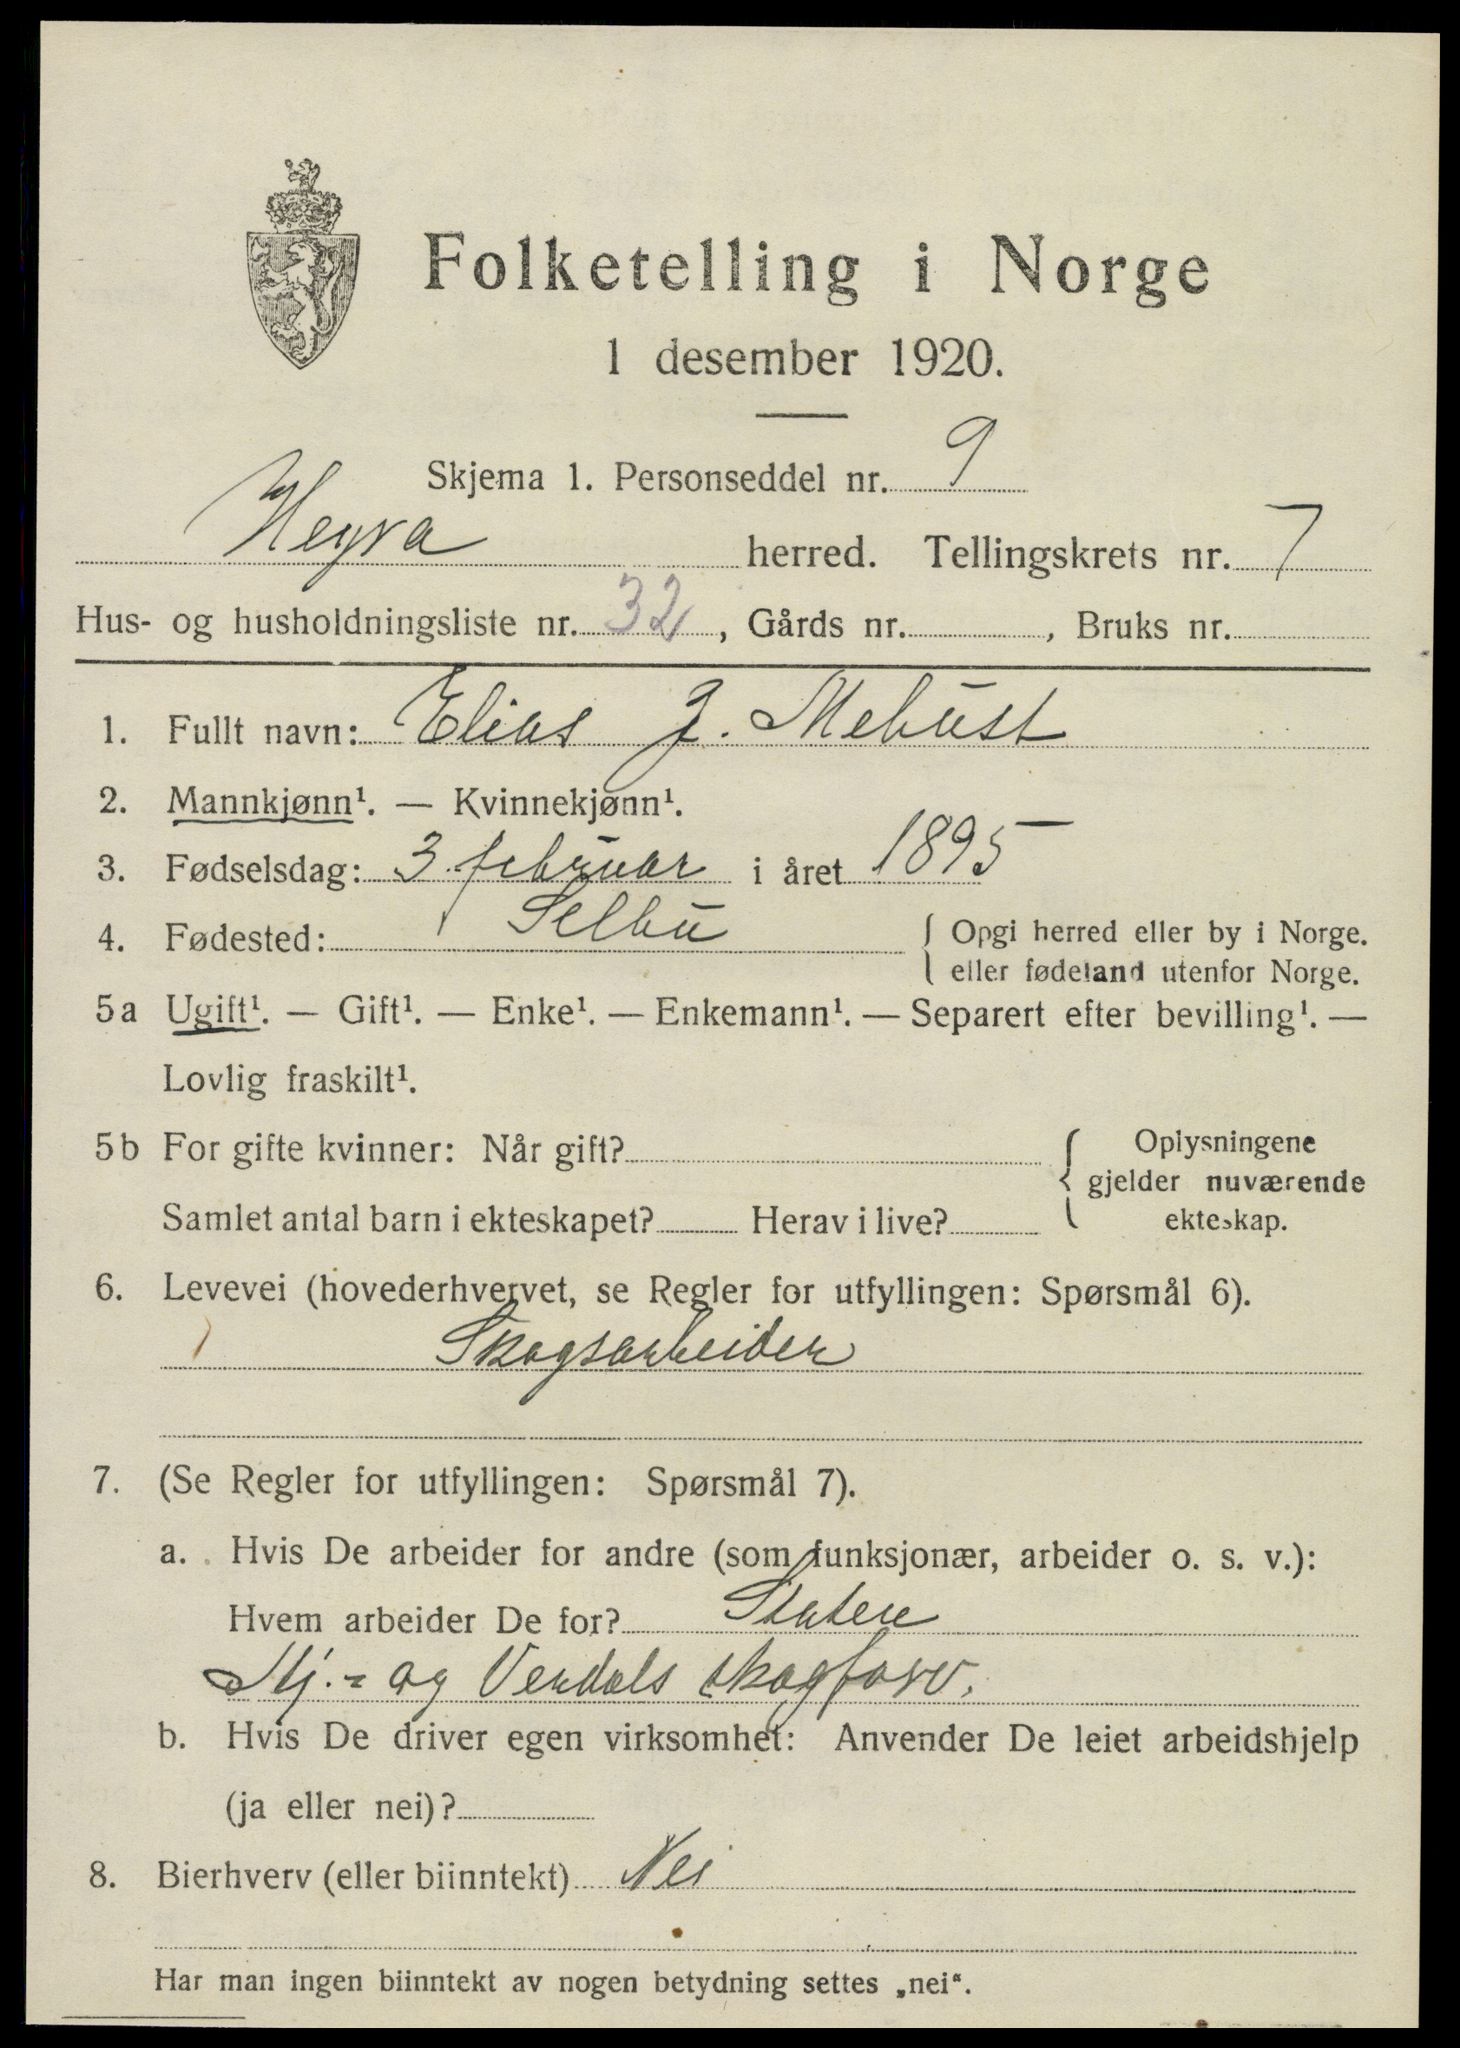 Folketelling i Norge
1 desember 1920.
Skjema 1. Personseddel nr. 9
Hegra herred. Tellingskrets nr. 7
Hus- og husholdningsliste nr. 32, Gårds nr. , Bruks nr.
1. Fullt navn: Elias J. Mebust
2. Mannkjønn¹. — Kvinnekjønn¹.
3. Fødselsdag: 3 februar i året 1895
4. Fødested: Selbu { Opgi herred eller by i Norge.
eller fødeland utenfor Norge.
5a Ugift¹. — Gift¹. — Enke¹. — Enkemann¹. — Separert efter bevilling¹. —
Lovlig fraskilt¹.
5b For gifte kvinner: Når gift? { Oplysningene
gjelder nuværende
Samlet antal barn i ekteskapet? Herav i live? ekteskap.
6. Levevei (hovederhvervet, se Regler for utfyllingen: Spørsmål 6).
Skogsarbeider
7. (Se Regler for utfyllingen: Spørsmål 7).
a. Hvis De arbeider for andre (som funksjonær, arbeider o. s. v.):
Hvem arbeider De for? Staten
Stj.- og Verdals skogforv.
b. Hvis De driver egen virksomhet: Anvender De leiet arbeidshjelp
(ja eller nei)?
8. Bierhverv (eller biinntekt) Nei
Har man ingen biinntekt av nogen betydning settes „nei“.